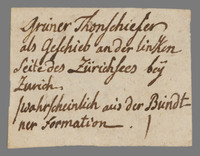 Grüner Thonschiefer
als Geschieb an der linken
Seite des Zürichsees beÿ
Zürich.
wahrscheinlich aus der Bündt
ner Formation.